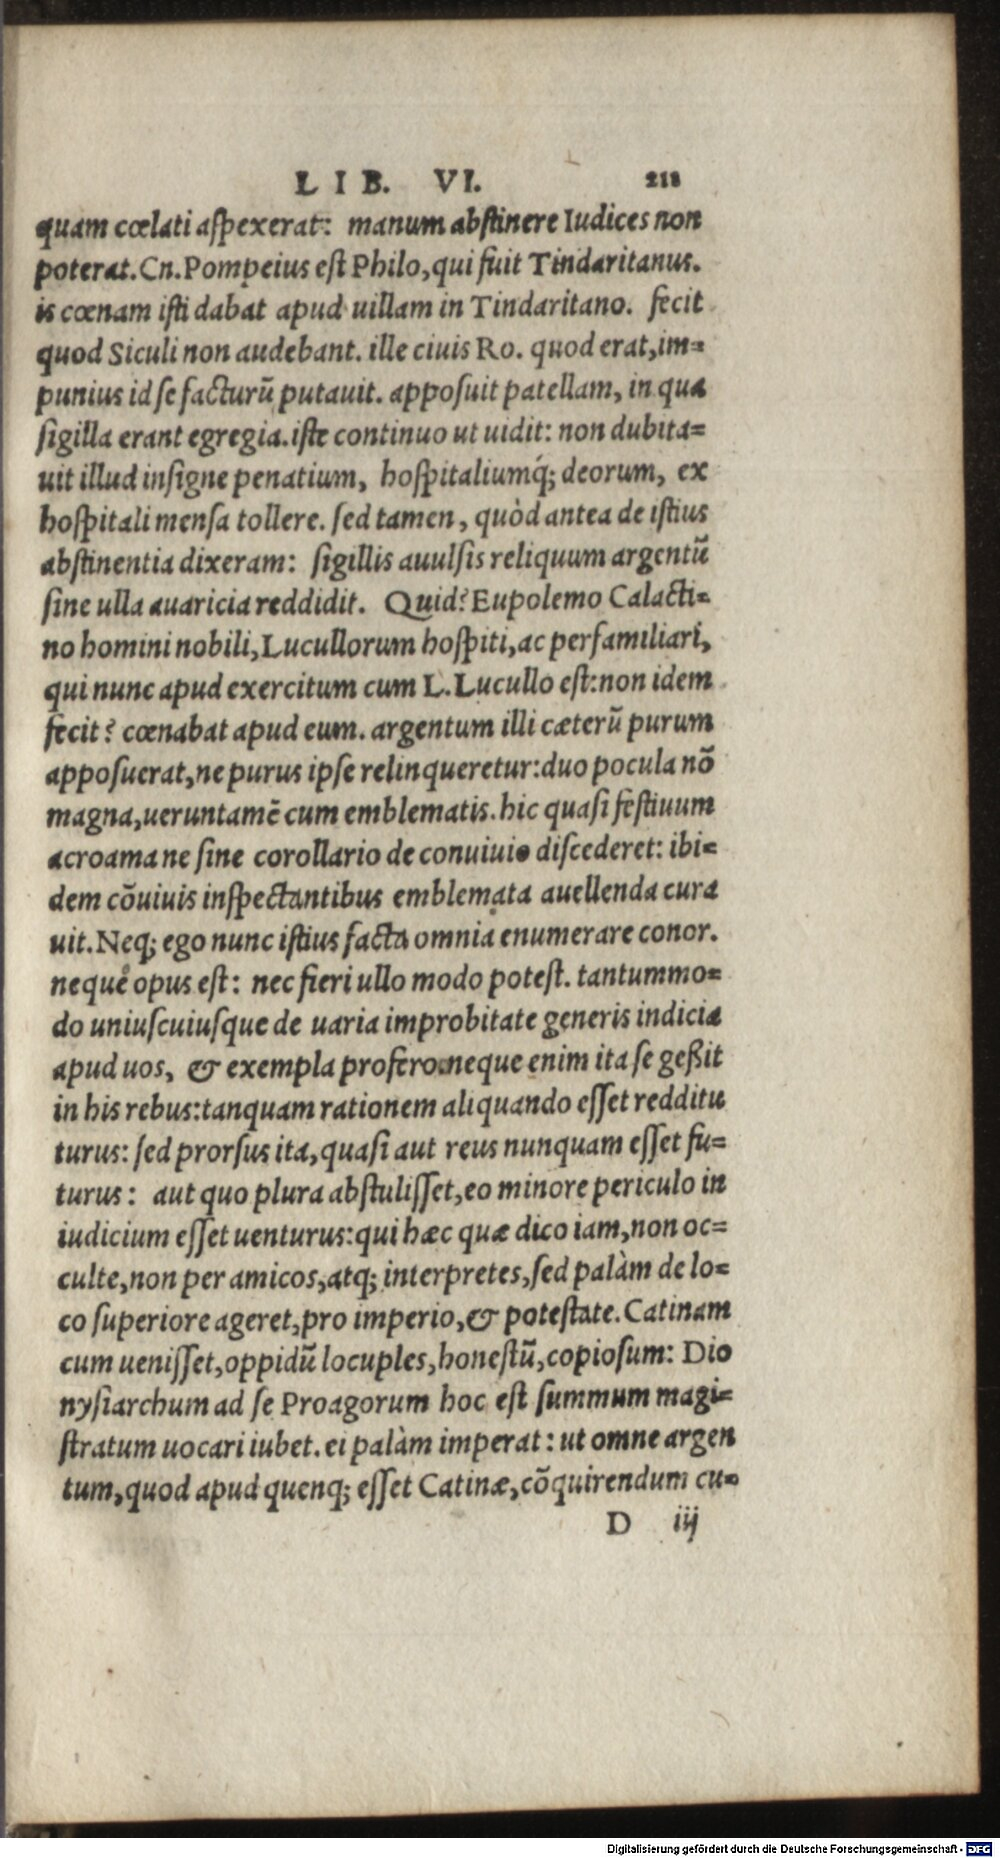 LIB. VI. 218
quam cœlati aſpexerat: manum abſtinere Iudices non
poterat. Cn. Pompeius eſt Philo, qui fuit Tindaritanus.
is cœnam iſti dabat apud uillam in Tindaritano. fecit
quod Siculi non audebant. ille ciuis Ro. quod erat, im=
punius id ſe facturū putauit. appoſuit patellam, in qua
ſigilla erant egregia. iſte continuo ut uidit: non dubita=
uit illud inſigne penatium, hoſpitaliumq́; deorum, ex
hoſpitali menſa tollere. ſed tamen, quòd antea de iſtius
abſtinentia dixeram: ſigillis auulſis reliquum argentū
ſine ulla auaricia reddidit. Quid? Eupolemo Calacti=
no homini nobili, Lucullorum hoſpiti, ac perfamiliari,
qui nunc apud exercitum cum L. Lucullo eſt: non idem
fecit? cœnabat apud eum. argentum illi cæterū purum
appoſuerat, ne purus ipſe relinqueretur: duo pocula nō
magna, ueruntamē cum emblematis. hic quaſi feſtiuum
acroama ne ſine corollario de conuiuio diſcederet: ibi=
dem cōuiuis inſpectantibus emblemata auellenda cura
uit. Neq; ego nunc iſtius facta omnia enumerare conor.
neque opus eſt: nec fieri ullo modo poteſt. tantummo=
do uniuſcuiuſque de uaria improbitate generis indicia
apud uos, & exempla profero. neque enim ita ſe geßit
in his rebus: tanquam rationem aliquando eſſet redditu
turus: ſed prorſus ita, quaſi aut reus nunquam eſſet fu=
turus: aut quo plura abſtuliſſet, eo minore periculo in
iudicium eſſet uenturus: qui hæc quæ dico iam, non oc=
culte, non per amicos, atq; interpretes, ſed palàm de lo=
co ſuperiore ageret, pro imperio, & poteſtate. Catinam
cum ueniſſet, oppidū locuples, honeſtū, copioſum: Dio
nyſiarchum ad ſe Proagorum hoc eſt ſummum magi=
ſtratum uocari iubet. ei palàm imperat: ut omne argen
tum, quod apud quenq; eſſet Catinæ, cōquirendum cu=
D iij
Digitalisierung gefördert durch die Deutsche Forschungsgemeinschaft - DFG